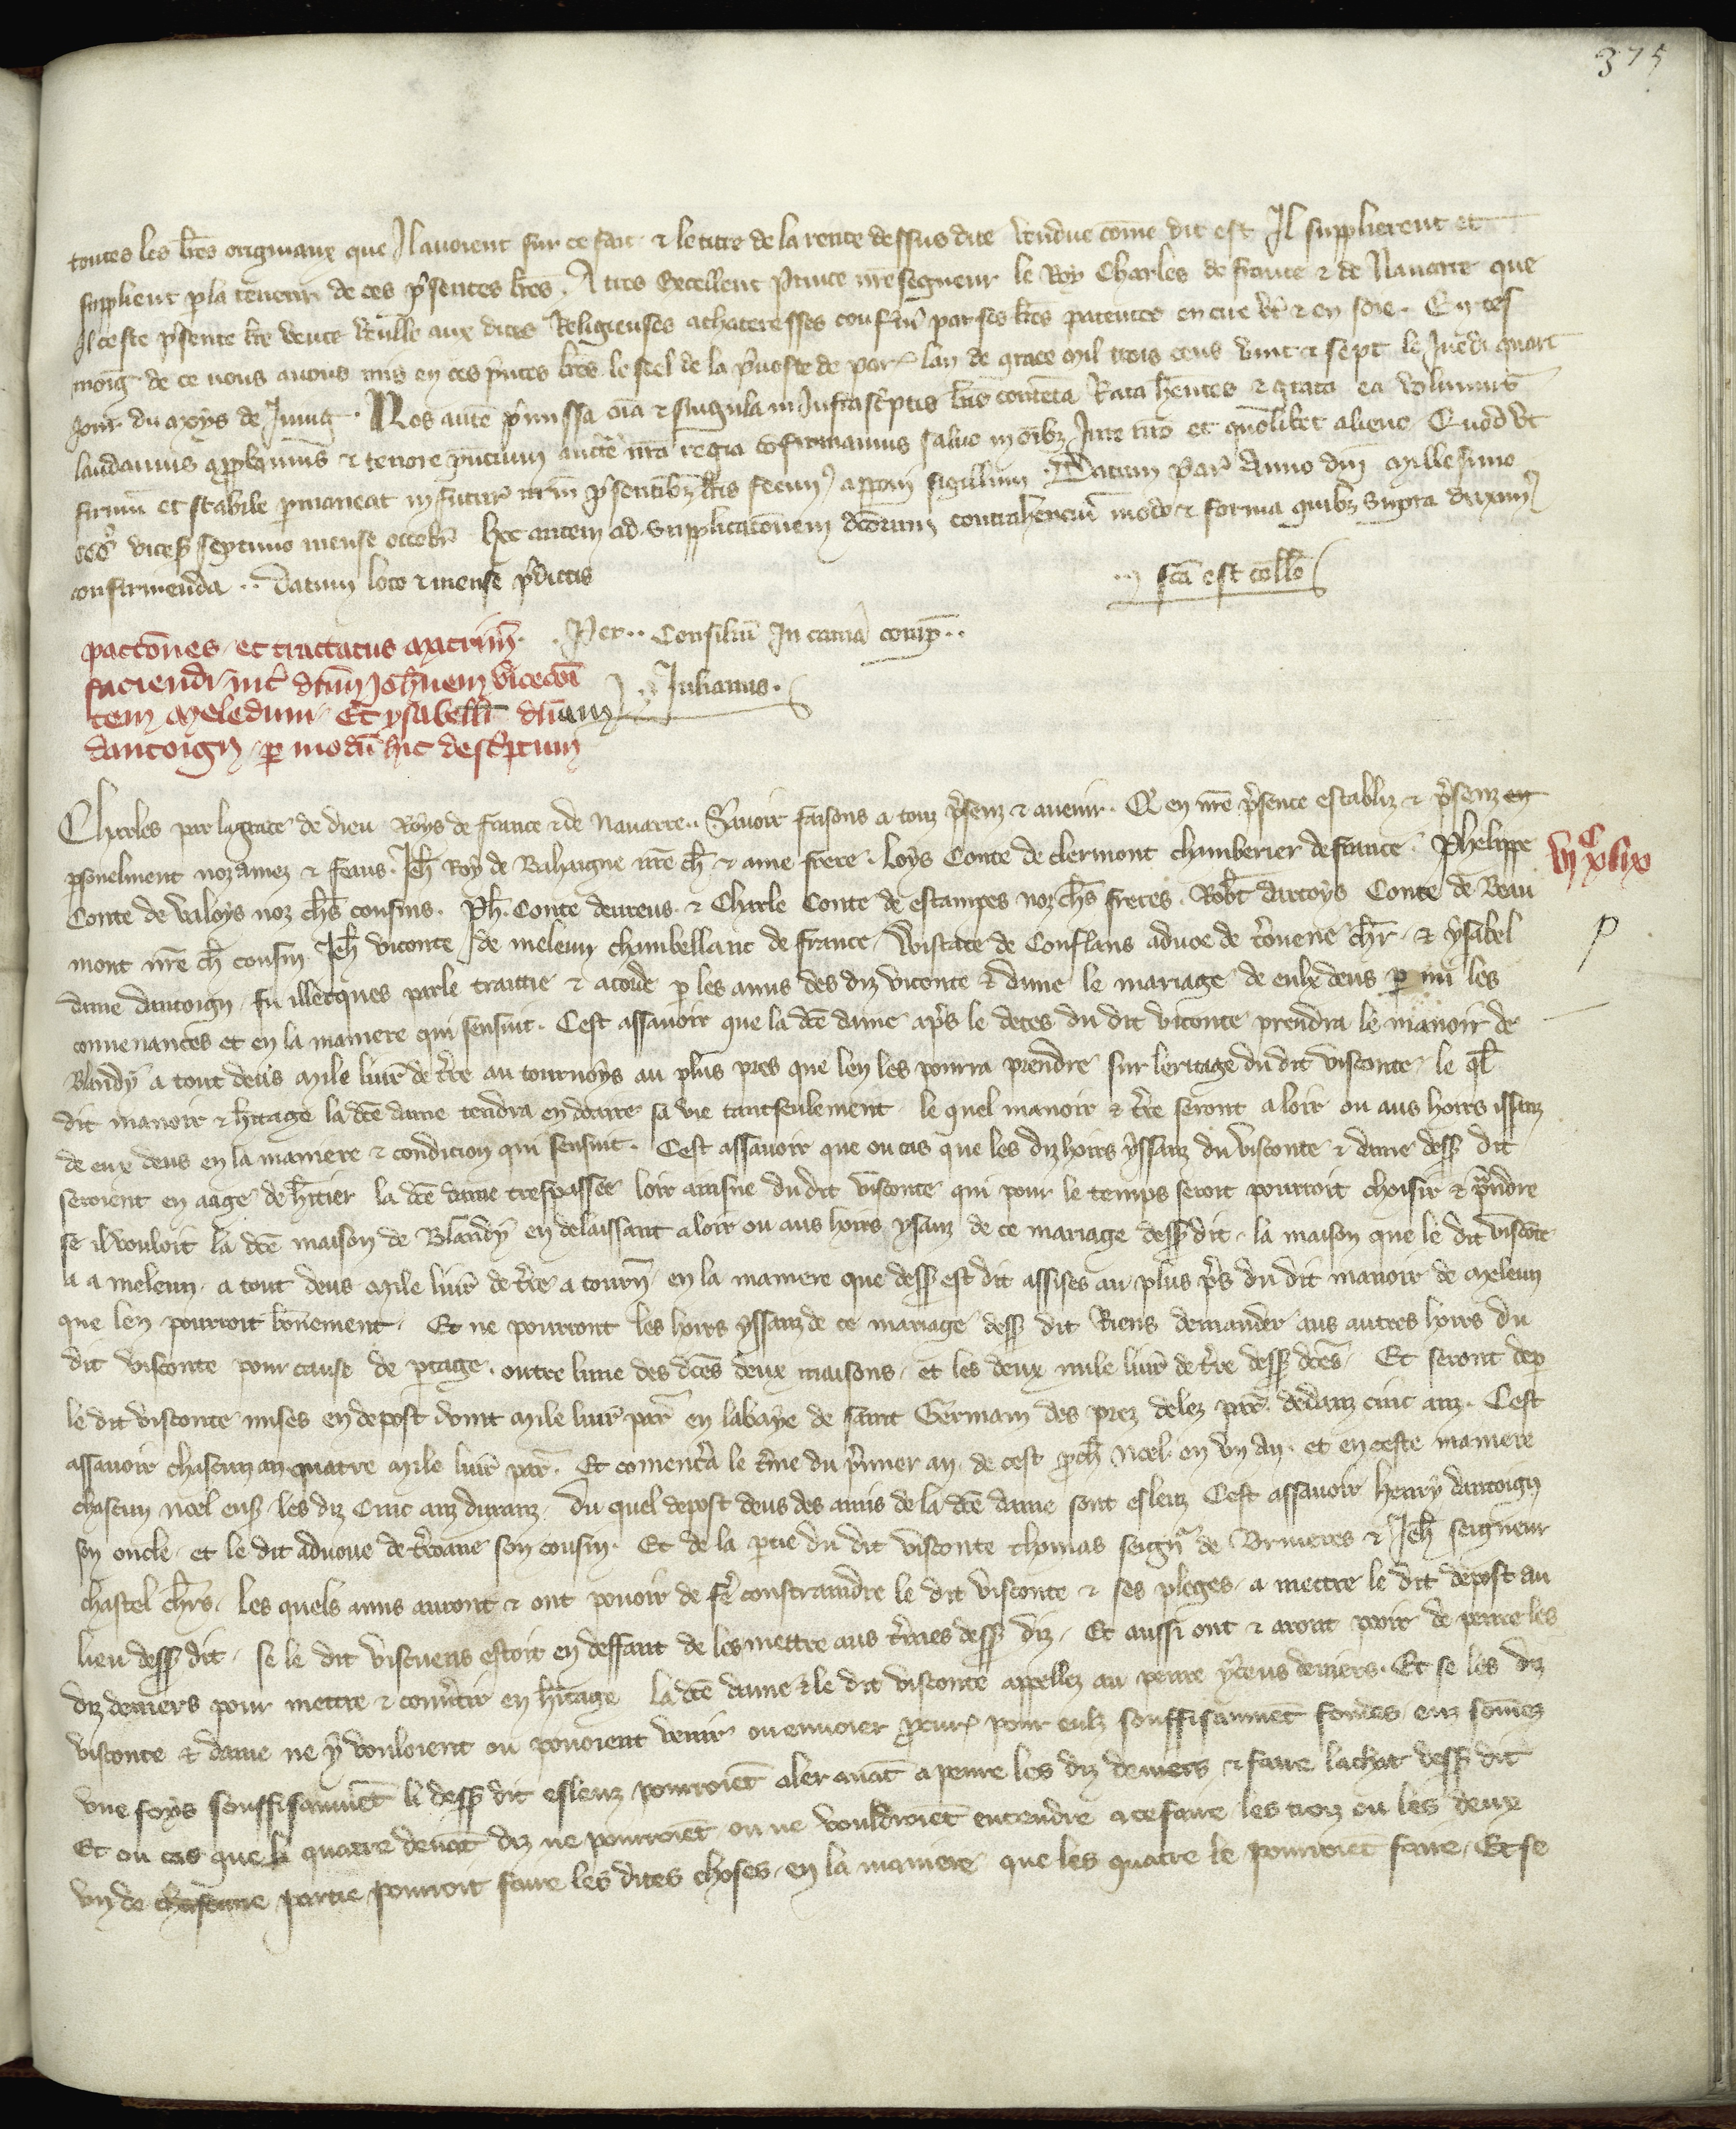 375
toutes les lr̃es originaux que Il auoient sur ce fait & le titre de la rente dessus dite vendue com̃e dit est Il supplierent et
supplient p la teneur de ces p̃sentes lr̃es. A tres Excellent Prince nr̃e seigneur le Roy Charles de france & de Nauarre que
Il ceste p̃sente lr̃e veue veulle aux dites Religieuses achateresses confer̃m par ses lr̃es patentes en cire v̾t & en soie. En tes
moig̃ de ce nous auons mis en ces p̃ntes lr̃es le seel de la p̃uoste de par̾ lan de grace mil trois cens vint & sept le Juedi quart
jour du moys de Juing. Nos aute p̃missa oia & singula in Infrasc̃ptis lr̃is contenta Rata hentes & grata ea volumus
laudamus approbamus & tenore p̃ncium aucte nr̃a regia cõfirmamus saluo in oibz Jure nr̃o et quolibet alieno Quod vt
firmũ et stabile pmaneat in futur̃ nr̃m p̃sentibz lr̃is fecim̾ apponi sigillum. Datum par̾ Anno dñi Millesimo
ccc̊ vices̾ septimo mense octobr̃ hec autem ad supplicacionem dc̃orum contrahenciũ modo & forma quibz supra duxim̾
confirmenda .. Datum loco & mense p̃dictis
fc̃a est coll̃o
pactões et tractatus matrim̃. Per .. Consiliũ In cam̃a comp̃ ..
faciendi int̾ dñm Joh̃nem vicecom̃i
tem meledum Et ysabell̃ dñam Julianus.
dantoign p modũ hic desc̃ptum
Charles par la grace de dieu Roys de france & de Nauarre .. Sauoir faisons a touz p̃senz & auenir. Q̃ en nr̃e p̃sence establiz & p̃senz en
psonelment noz amez & feaus. Jeh̃ Roy de Bahaigne nr̃e ch̃ & ame frere. Loys Conte de clermont chamberier de france. Phelippe
vjᶜ xlix
Conte de valoys noz ch̃s cousins. Ph̃. Conte deureus & Charle Conte de estampes noz ch̃s freres. Rob̃t dartoys Conte de Beau
mont nr̃e ch̃ cousin Jeh̃ viconte de meleun chambellanc de france Wistace de Conflans aduoe de t̃ouene ch̃r & ysabel
p
dame dantoign fu illecques parle traittie & acorde p les amis des diz viconte & dame le mariage de eulx deus p mi les
conuenances et en la maniere qui sensuit. Cest assauoir que la dc̃e dame ap̃s le deces du dit viconte prendra le manoir de
Blandy a tout deus Mile liur̃ de t̃re au tournoys au plus pres que len les pourra prendre sur leritage du dit visconte le q̃l
dit manoir & h̃itage la dc̃e dame tendra en doaire sa vie tantseulement le quel manoir & t̃re seront a loir ou aus hoirs issanz
de eux deus en la maniere & condicion qui sensuit. Cest assauoir que ou cas que les diz hoirs yssanz du visconte & dame dess̾ dit
seroient en aage de h̃itier la dc̃e dame trespassee loir ainsne du dit visconte qui pour le temps seroit pourroit choisir & p̃ndre
se il vouloit la dc̃e maison de Blandy en delaissant a loir ou aus hoirs yssanz de ce mariage dess̾ dit la maison que le dit viscõte
a a meleun a tout deus Mile liur̃ de t̃re a tourñ en la maniere que dess̾ est dit assises au plus p̃s du dit manoir de Meleun
que len pourroit bonement. Et ne pourront les hoirs yssanz de ce mariage dess̾ dit Riens demander aus autres hoirs du
dit visconte pour cause de ptage. outre lune des dc̃es deux maisons et les deux mile liur̃ de t̃re dess̾ dc̃es. Et seront de p
le dit visconte mises en depost vint Mile liur̃ par̃ en labaye de saint Germain des prez delez par̃. dedanz cinc anz. Cest
assauoir chascun an quatre Mile liur̃ par̃. Et comenc̃a le t̃me du p̃mier an. de cest p̃ch̃ Noel en vn an. et en ceste maniere
chascun noel ens̾ les diz Cinc anz duranz. du quel depost deus des amis de la dc̃e dame sont esleuz Cest assauoir henry dantoign
son oncle et le dit aduoue de t̃roane son cousin. Et de la ptie du dit visconte thomas seign̾ de Bruieres & Jeh̃ seigneur
chastel ch̃rs. Les quels amis auront & ont pouoir de fe̾ constraindre le dit visconte & ses pleges a mettre le dit depost au
lieu dess̾ dit se le dit viscuens estoit en deffaut de les mettre aus t̃mes dess̾ diz. Et aussi ont & aront pooir de penre les
diz deniers pour mettre & conu̾tir en h̃itage la dc̃e dame & le dit visconte appellez au penre yceus deniers. Et se les diz
visconte & dame ne y vouloient ou pouoient venir ou enuoier p̃cur̾ pour eulx souffisaument fondes enz somes
vne foys souffisaumẽt li dess̾ dit esleuz pourroiẽt aler auãt a penre les diz deniers & faire lachat dess̾ dit
Et ou cas que li quatre deuãt diz ne pourroiẽt ou ne vouldroiẽt entendre a ce faire les troiz ou les deux
vn de chascune partie pourroit faire les dites choses en la maniere que les quatre le pourroiẽt faire. Et se